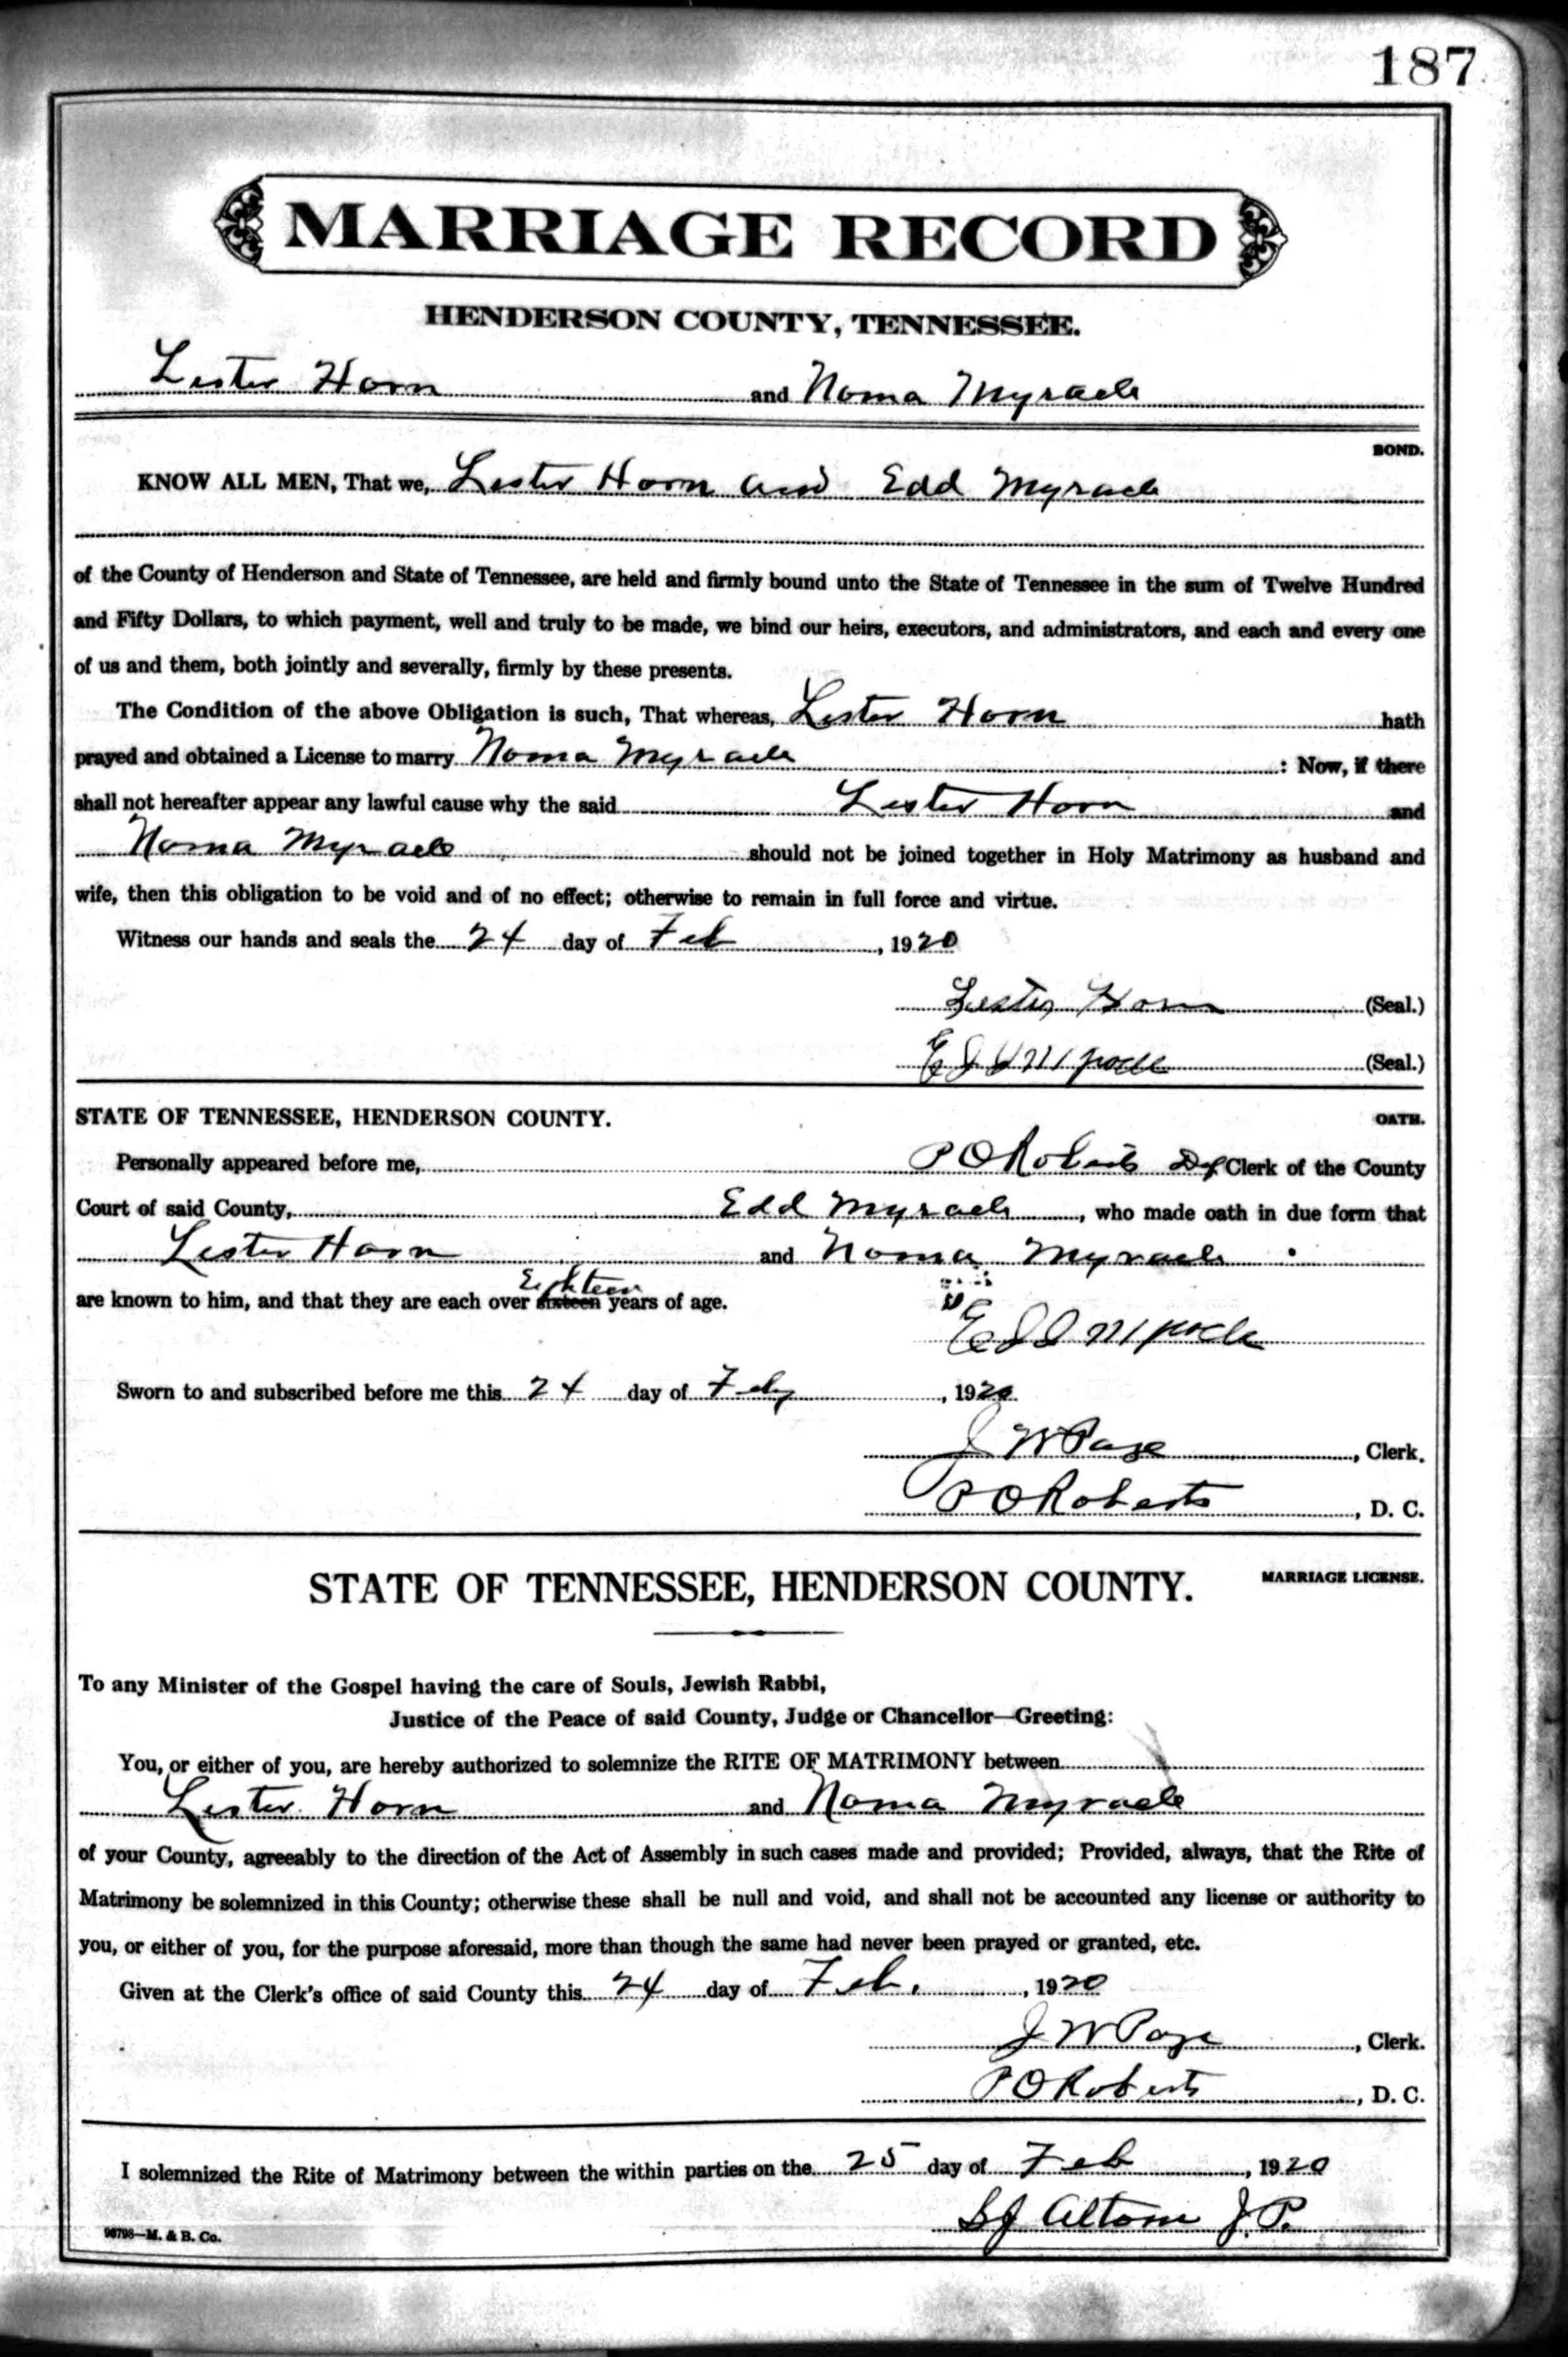 187
MARRIAGE RECORD
HENDERSON COUNTY, TENNESSEE.
Lester Horn and Noma Myracle
BOND.
KNOW ALL MEN, That we, Lester Horn and Edd Myracle
of the County of Henderson and State of Tennessee, are held and firmly bound unto the State of Tennessee in the sum of Twelve Hundred
and Fifty Dollars, to which payment, well and truly to be made, we bind our heirs, executors, and administrators, and each and every one
of us and them, both jointly and severally, firmly by these presents.
The Condition of the above Obligation is such, That whereas, Lester Horn hath
prayed and obtained a License to marry Noma Myracle : Now, if there
shall not hereafter appear any lawful cause why the said Lester Horn and
Noma Myracle should not be joined together in Holy Matrimony as husband and
wife, then this obligation to be void and of no effect; otherwise to remain in full force and virtue.
Witness our hands and seals the 24 day of Feb, 1920
Lester Horn (Seal.)
Edd (Seal.)
STATE OF TENNESSEE, HENDERSON COUNTY. OATH.
Personally appeared before me, P O Roberts Dep Clerk of the County
Court of said County, Edd Myracle, who made oath in due form that
Lester Horn and Noma Myracle
are known to him, and that they are each over sixteen Eighteen years of age.
Edd
Sworn to and subscribed before me this 24 day of Feby, 1920
J W Page, Clerk.
P O Roberts, D. C.
STATE OF TENNESSEE, HENDERSON COUNTY. MARRIAGE LICENSE.
To any Minister of the Gospel having the care of Souls, Jewish Rabbi,
Justice of the Peace of said County, Judge or Chancellor—Greeting:
You, or either of you, are hereby authorized to solemnize the RITE OF MATRIMONY between
Lester Horn and Noma Myracle
of your County, agreeably to the direction of the Act of Assembly in such cases made and provided; Provided, always, that the Rite of
Matrimony be solemnized in this County; otherwise these shall be null and void, and shall not be accounted any license or authority to
you, or either of you, for the purpose aforesaid, more than though the same had never been prayed or granted, etc.
Given at the Clerk's office of said County this 24 day of Feb., 1920
J W Page, Clerk.
P O Roberts, D. C.
I solemnized the Rite of Matrimony between the within parties on the 25 day of Feb, 1920
Altom J. P.
96798—M. & B. Co.